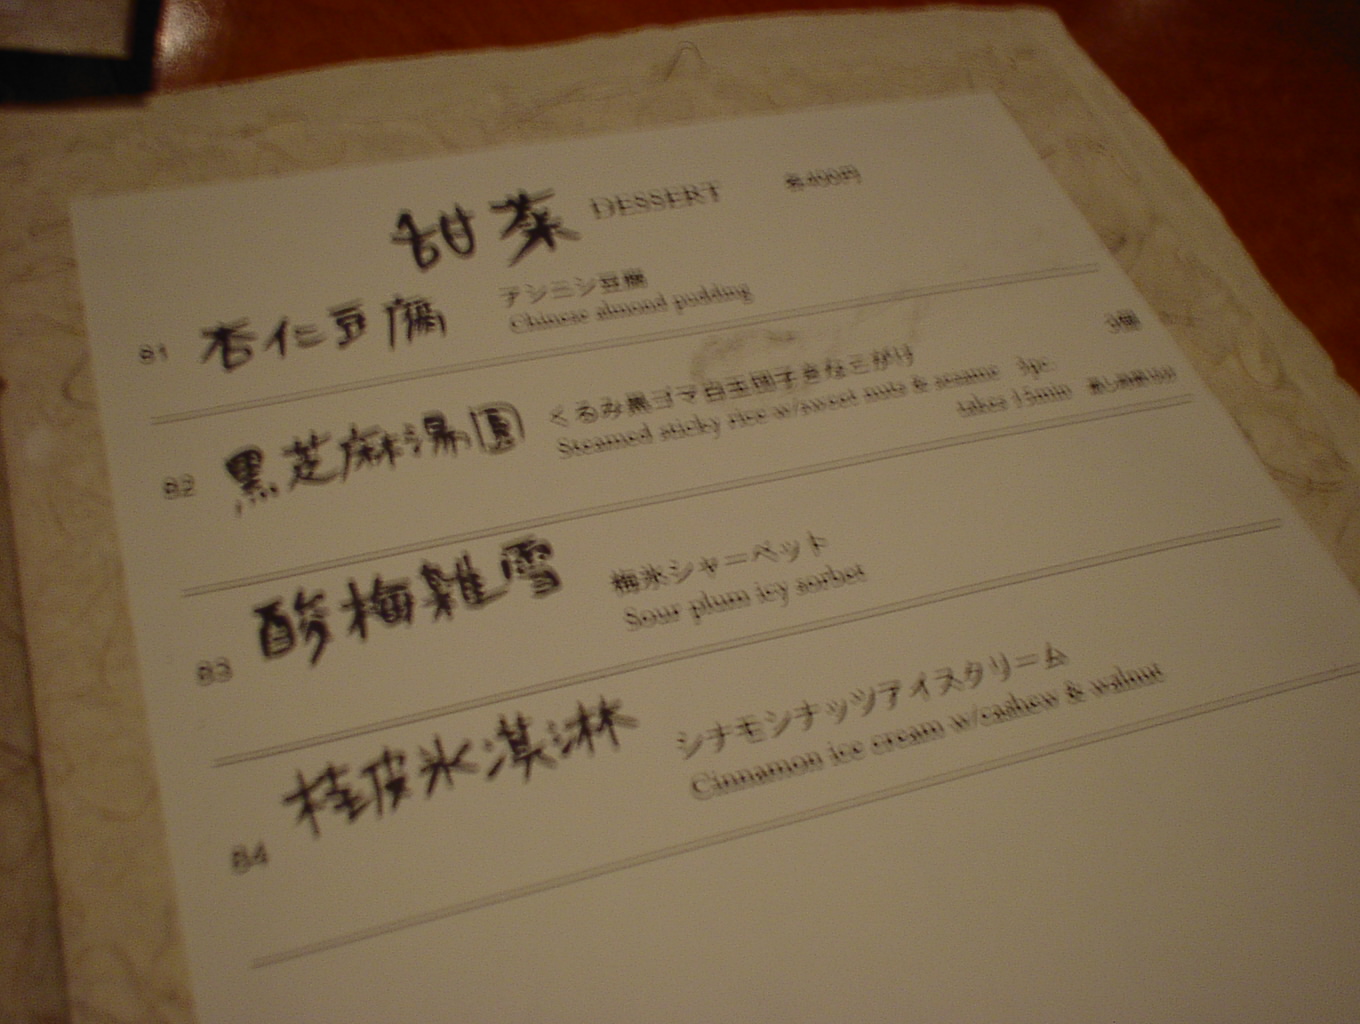 甜菜 DESSERT 各400円
81 杏仁豆腐 アンニン豆腐
Chinese almond pudding
82 黒芝麻湯圓 くるみ黒ゴマ白玉団子きなこがけ 3個
Steamed sticky rice w/sweet nuts & sesame 3pc
takes 15min
83 酸梅雞雪 梅氷シャーベット
Sour plum icy sorbet
84 桂皮氷淇淋 シナモンナッツアイスクリーム
Cinnamon ice cream w/cashew & walnut